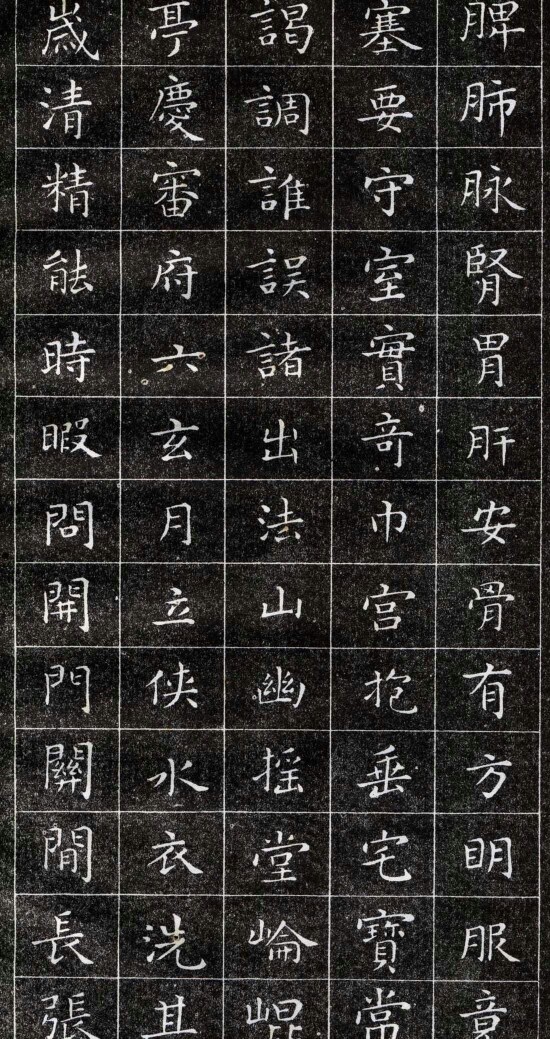 脾肺脉腎胃肝安骨有方明服竟
塞要守室實奇巾宫抱垂宅寶常
謁調誰誤諸出法山幽摇堂崘崐
亭慶審府六玄月立侠水衣洗其
歳清精能時暇問開門關閒長張